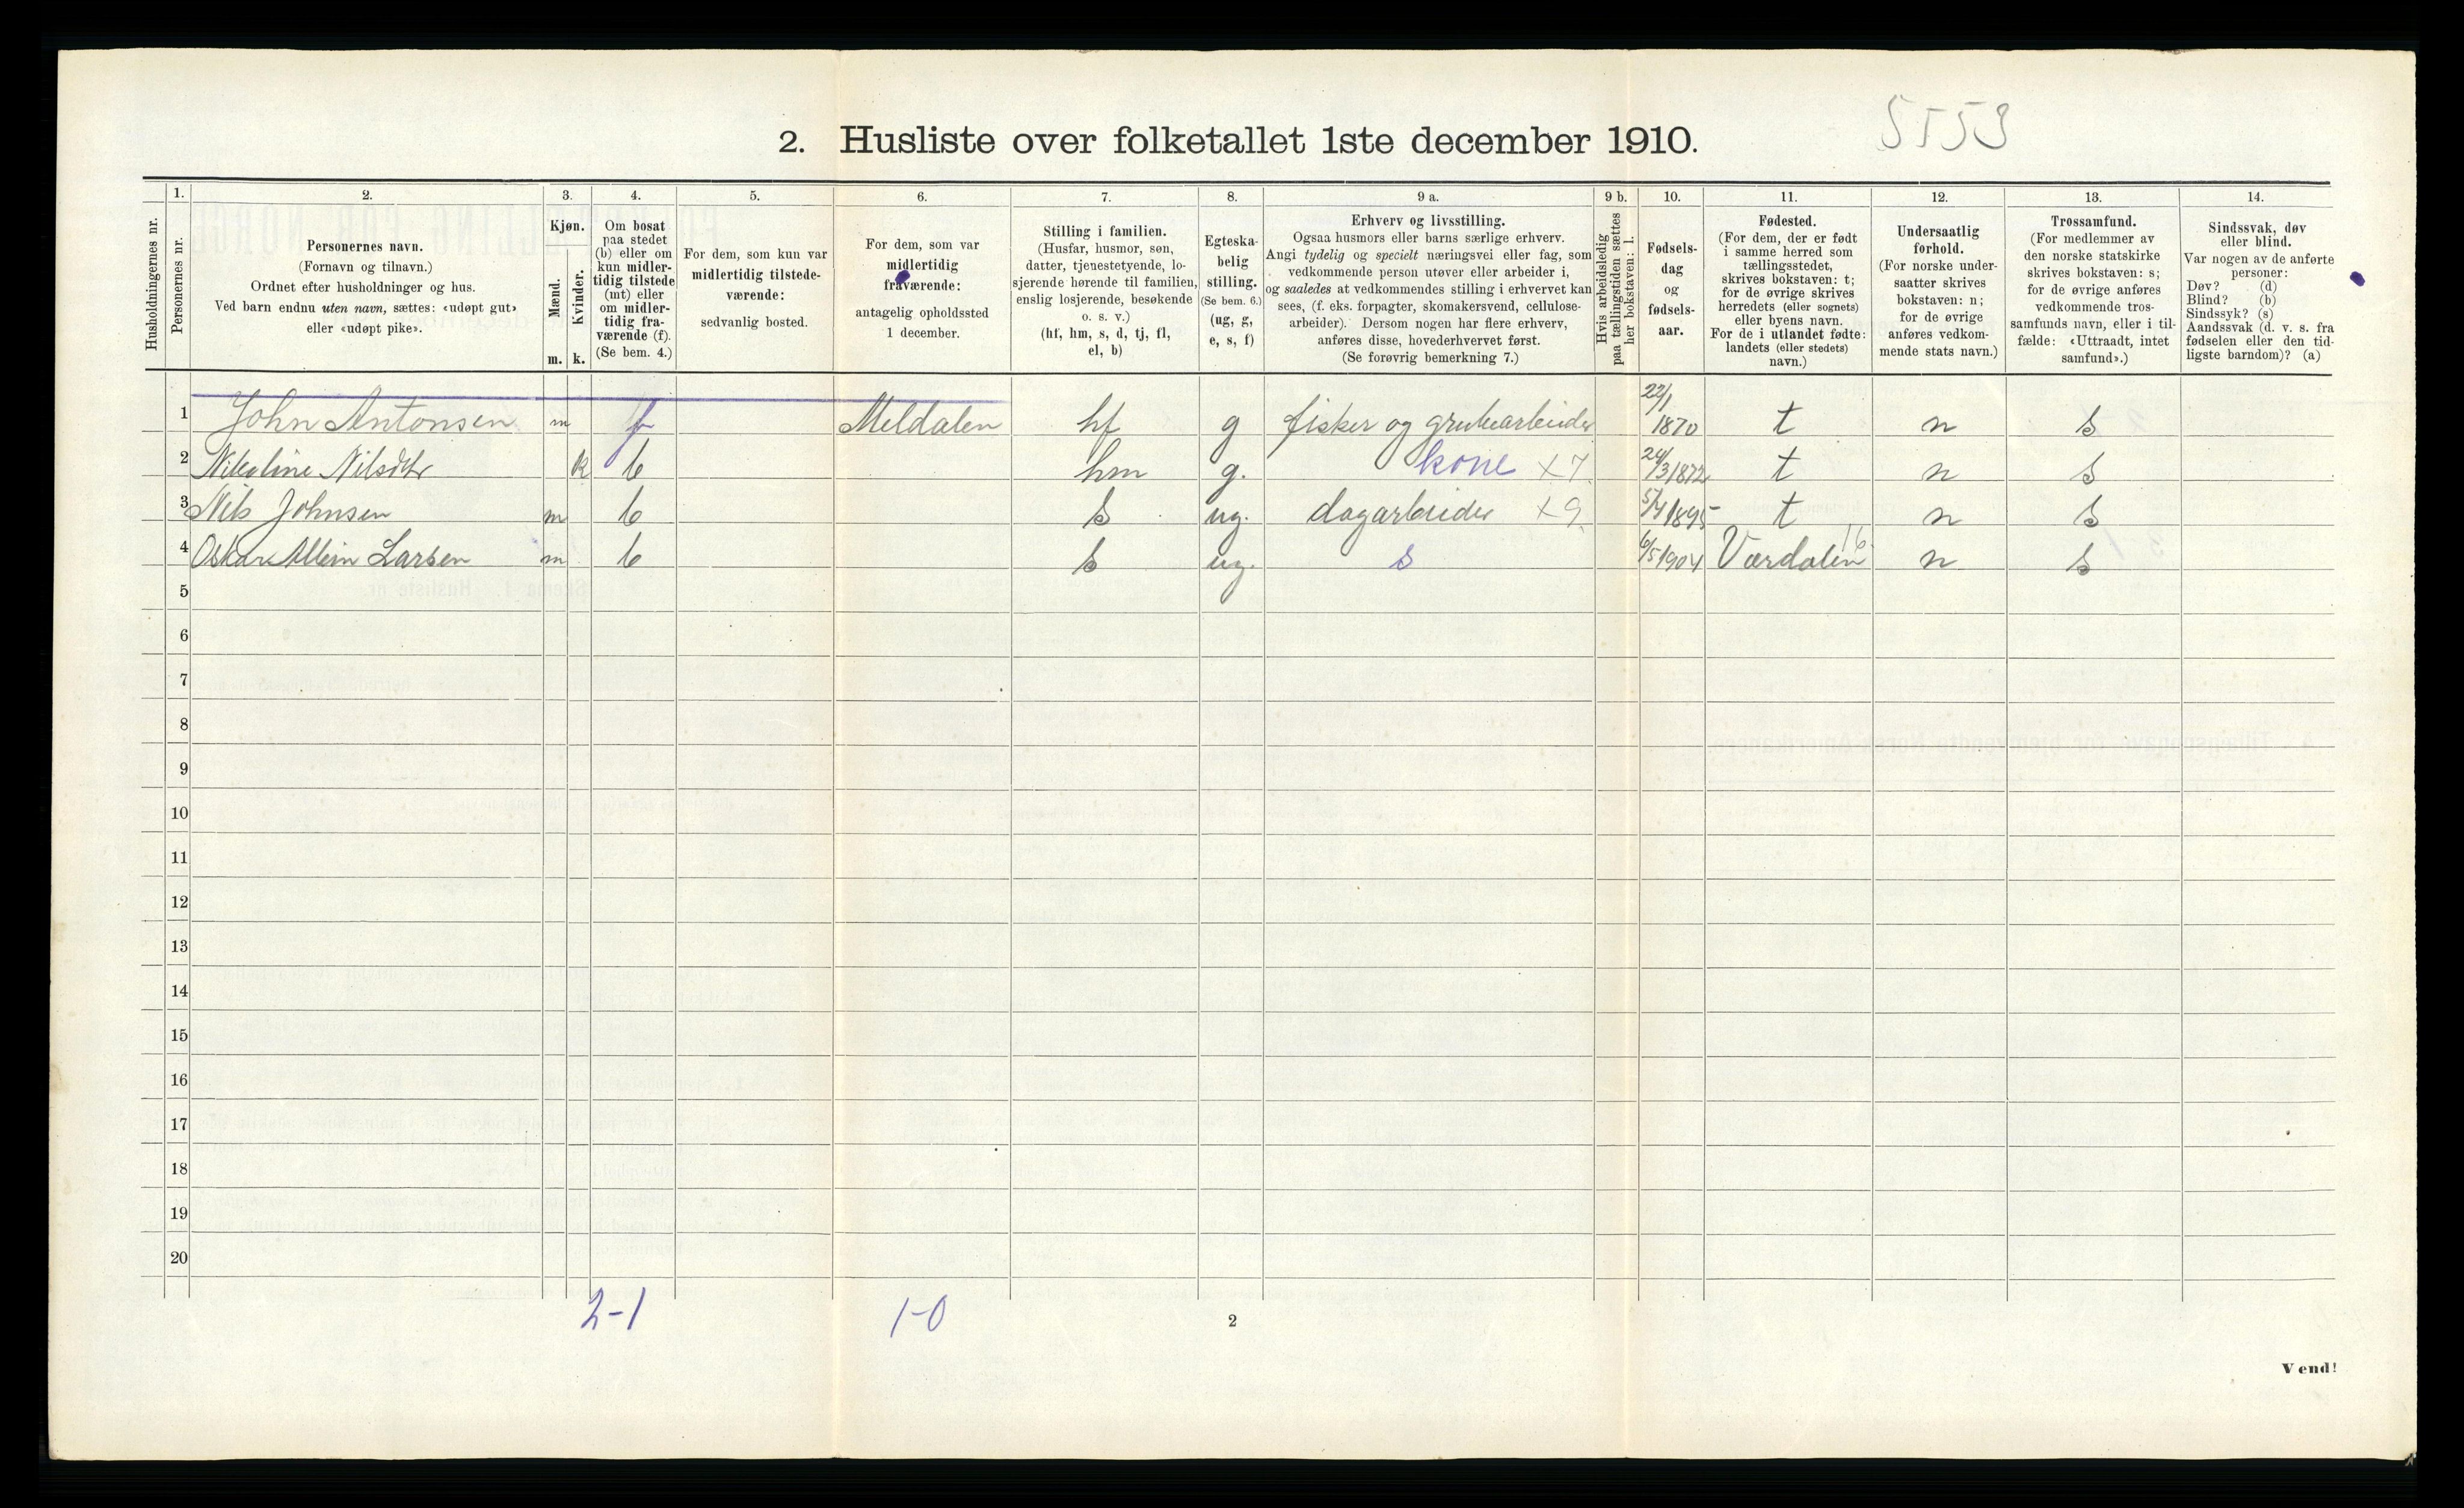 5553
2. Husliste over folketallet 1ste december 1910.
Husholdningernes nr.
1.
Personernes nr.
2.
Personernes navn.
(Fornavn og tilnavn.)
Ordnet efter husholdninger og hus.
Ved barn endnu uten navn, sættes: «udøpt gut»
eller «udøpt pike».
3.
Kjøn.
Mænd.
Kvinder.
m. k.
4.
Om bosat
paa stedet
(b) eller om
kun midler-
tidig tilstede
(mt) eller
om midler-
tidig fra-
værende (f).
(Se bem. 4.)
5.
For dem, som kun var
midlertidig tilstede-
værende:
sedvanlig bosted.
6.
For dem, som var
midlertidig
fraværende:
antagelig opholdssted
1 december.
7.
Stilling i familien.
(Husfar, husmor, søn,
datter, tjenestetyende, lo-
sjerende hørende til familien,
enslig losjerende, besøkende
o. s. v.)
(hf, hm, s, d, tj, fl,
el, b)
8.
Egteska-
belig
stilling.
(Se bem. 6.)
(ug, g,
e, s, f)
9 a.
Erhverv og livsstilling.
Ogsaa husmors eller barns særlige erhverv.
Angi tydelig og specielt næringsvei eller fag, som
vedkommende person utøver eller arbeider i,
og saaledes at vedkommendes stilling i erhvervet kan
sees, (f. eks. forpagter, skomakersvend, cellulose-
arbeider). Dersom nogen har flere erhverv,
anføres disse, hovederhvervet først.
(Se forøvrig bemerkning 7.)
9 b.
Hvis arbeidsledig
paa tællingstiden sættes
her bokstaven: l.
10.
Fødsels-
dag
og
fødsels-
aar.
11.
Fødested.
(For dem, der er født
i samme herred som
tællingsstedet,
skrives bokstaven: t;
for de øvrige skrives
herredets (eller sognets)
eller byens navn.
For de i utlandet fødte:
landets (eller stedets)
navn.)
12.
Undersaatlig
forhold.
(For norske under-
saatter skrives
bokstaven: n;
for de øvrige
anføres vedkom-
mende stats navn.)
13.
Trossamfund.
(For medlemmer av
den norske statskirke
skrives bokstaven: s;
for de øvrige anføres
vedkommende tros-
samfunds navn, eller i til-
fælde: «Uttraadt, intet
samfund».)
14.
Sindssvak, døv
eller blind.
Var nogen av de anførte
personer:
Døv? (d)
Blind? (b)
Sindssyk? (s)
Aandssvak (d. v. s. fra
fødselen eller den tid-
ligste barndom)? (a)
1 John Antonsen m f Meldalen hf g fisker og grubearbeider 22/1 1870 t n s
2 Nikoline Nilsdtr k b hm g. kone x7 24/3 1872 t n s
3 Nils Johnsen m b s ug. dagarbeider x9 5/4 1895 t n s
4 Oskar Larsen m b s ug. s 6/5 1904 Værdalen 16 n s
5
6
7
8
9
10
11
12
13
14
15
16
17
18
19
20
2-1 1-0
2
Vend!